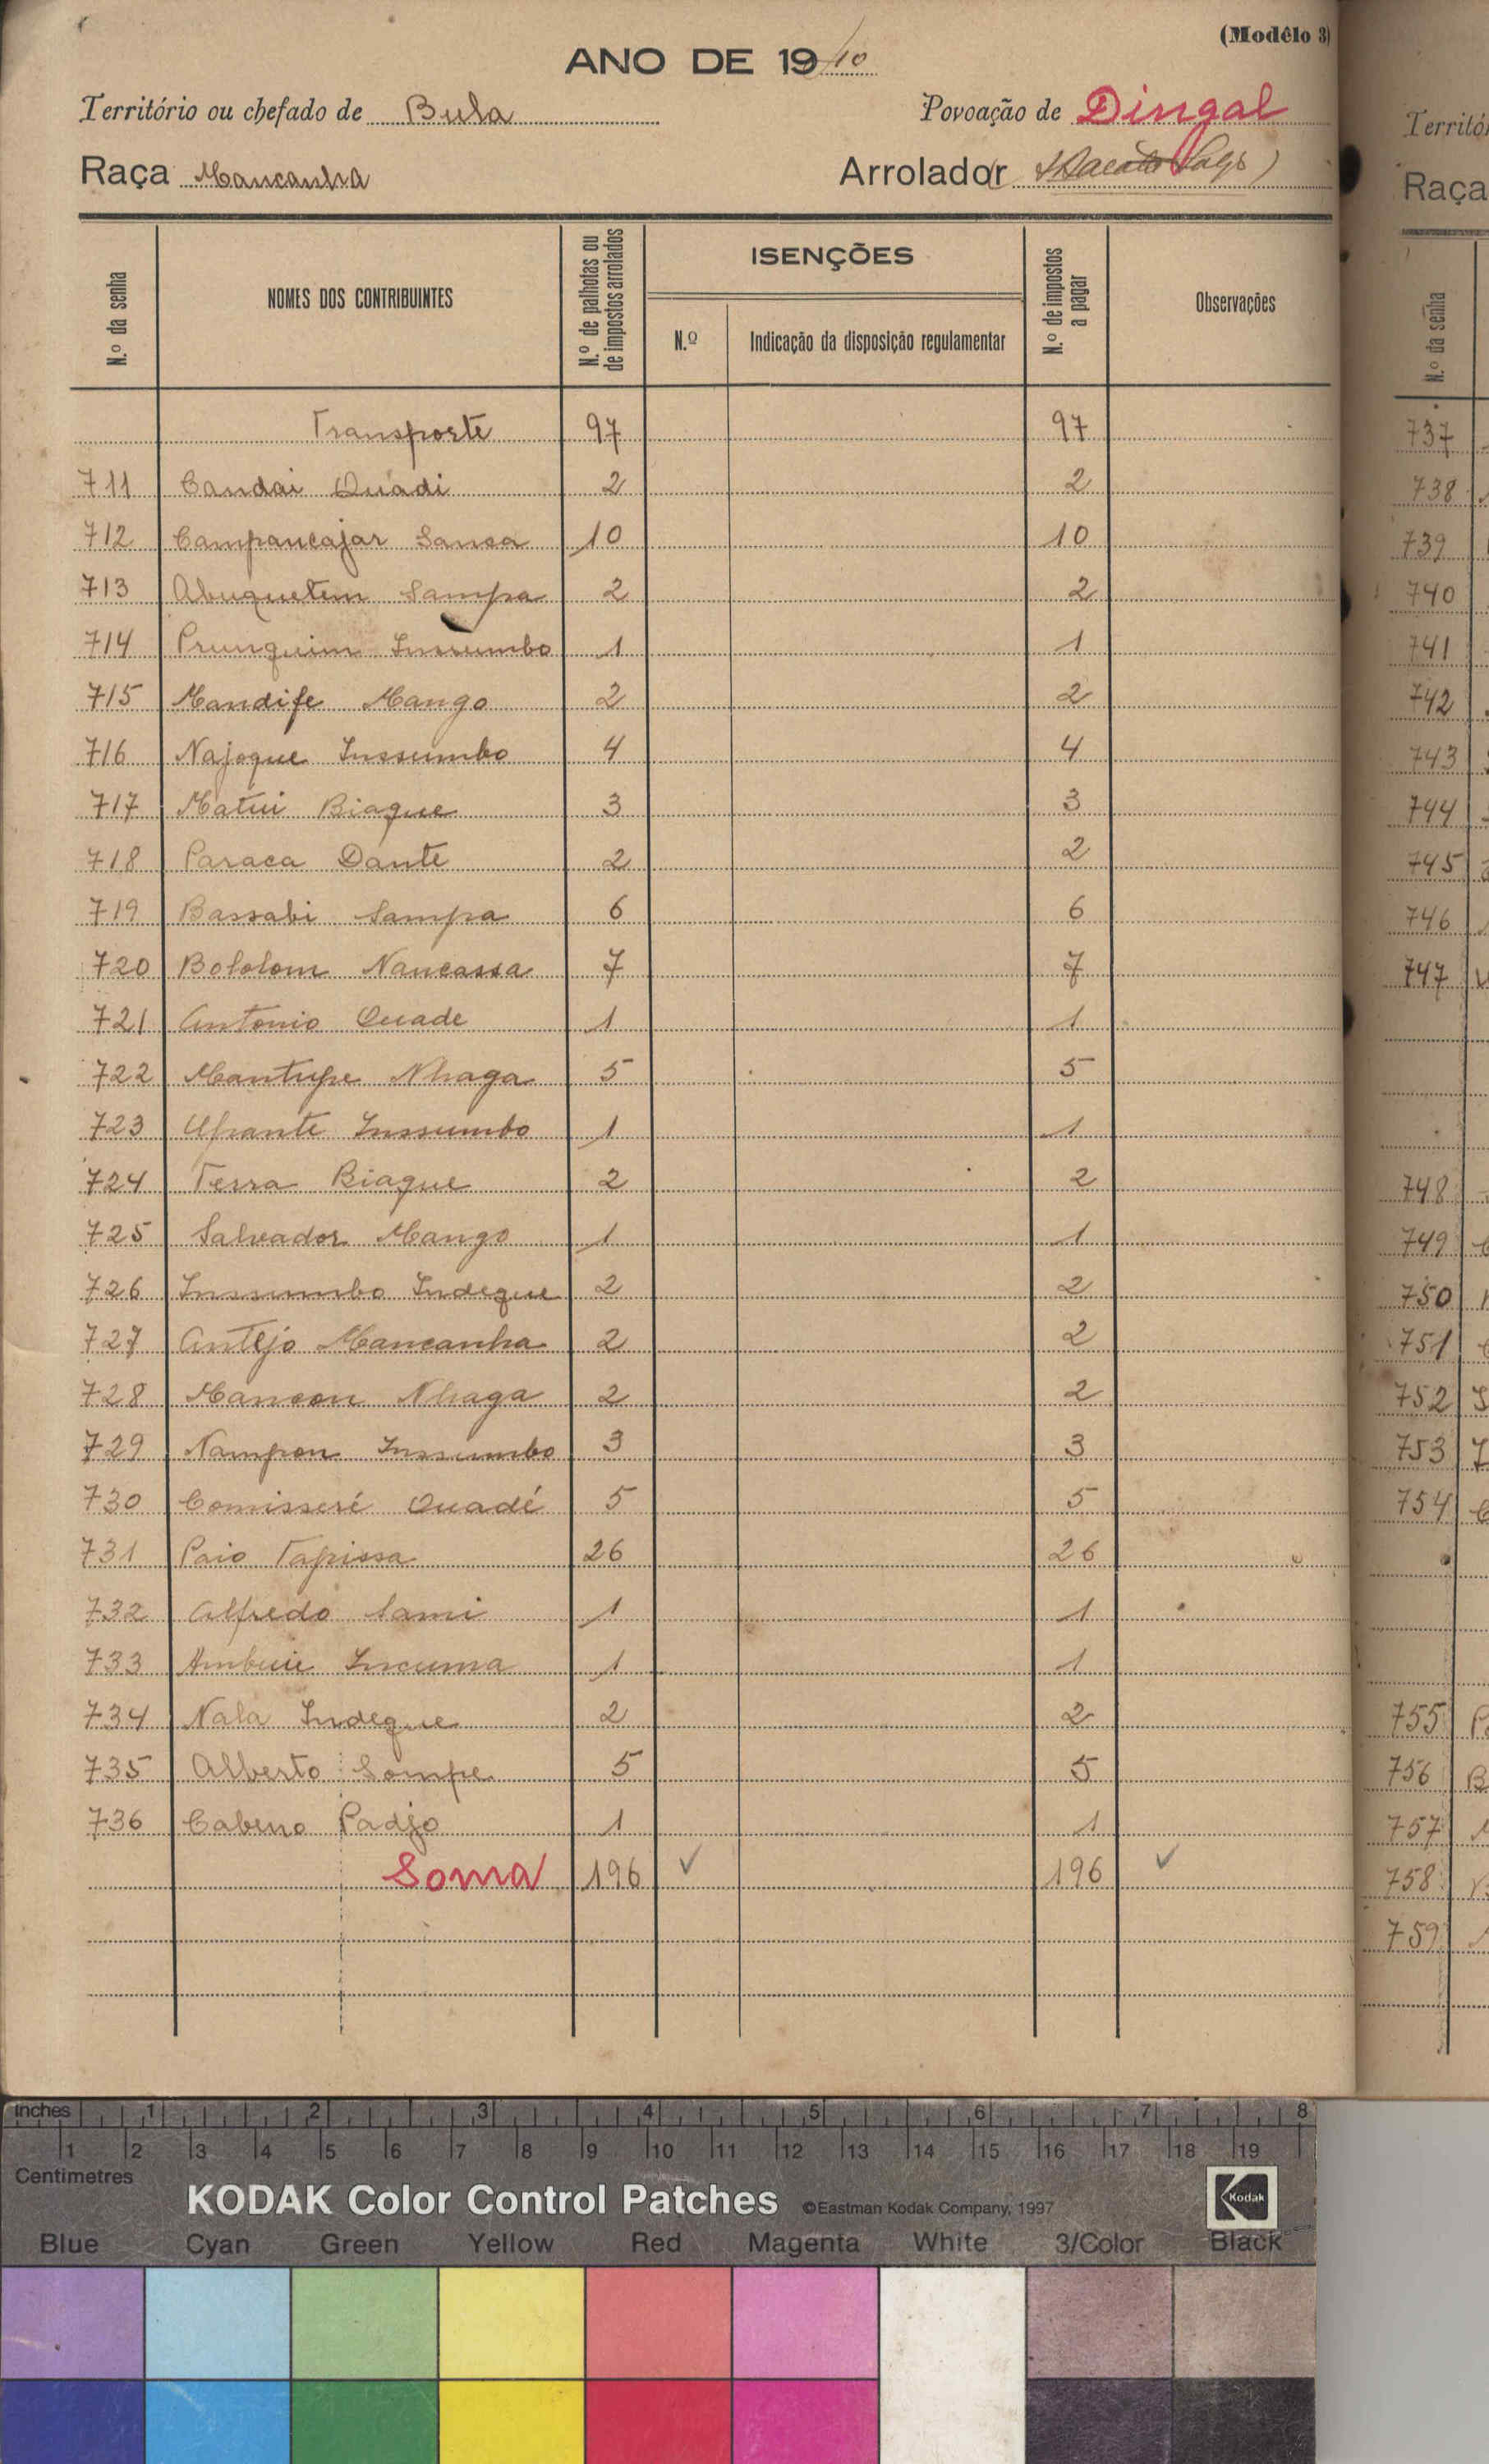 (Modêlo 3)
ANO DE 1940
Território ou chefado de Bula Povoação de Dingal
Raça Mancanha Arrolador
N.º da senha NOMES DOS CONTRIBUINTES N.º de palhotas ou de impostos arrolados ISENÇÕES N.º Indicação da disposição regulamentar N.º de impostos a pagar Observações
Transporte 97 97
711 Candai Quadi 2 2
712 Campancajar Sanca 10 10
713 Abuquetem Sampa 2 2
714 Prunquim Inssumbo 1 1
715 Mandife Mango 2 2
716 Najoque Inssumbo 4 4
717 Matui Biague 3 3
718 Paraca Dante 2 2
719 Bassabi Sampa 6 6
720 Bololom Nancassa 7 7
721 Antonio Quade 1 1
722 Mantupe Nhaga 5 5
723 Ufrante Inssumbo 1 1
724 Terra Biague 2 2
725 Salvador Mango 1 1
726 Inssumbo Indeque 2 2
727 Antejo Mancanha 2 2
728 Mancon Nhaga 2 2
729 Nampon Inssumbo 3 3
730 Comisseré Quadé 5 5
731 Paio Tapissa 26 26
732 Alfredo Sami 1 1
733 Ambuie Incuma 1 1
734 Nala Indeque 2 2
735 Alberto Sompe 5 5
736 Cabeno Padjo 1 1
Soma 196 ✓ 196 ✓
Territó
Raça
N.º da senha
737
738
739
740
741
742
743
744
745
746
747
748
749
750
751
752
753
754
755
756
757
758
759
inches 1 2 3 4 5 6 7 8
1 2 3 4 5 6 7 8 9 10 11 12 13 14 15 16 17 18 19
Centimetres
KODAK Color Control Patches ©Eastman Kodak Company, 1997 Kodak
Blue Cyan Green Yellow Red Magenta White 3/Color Black